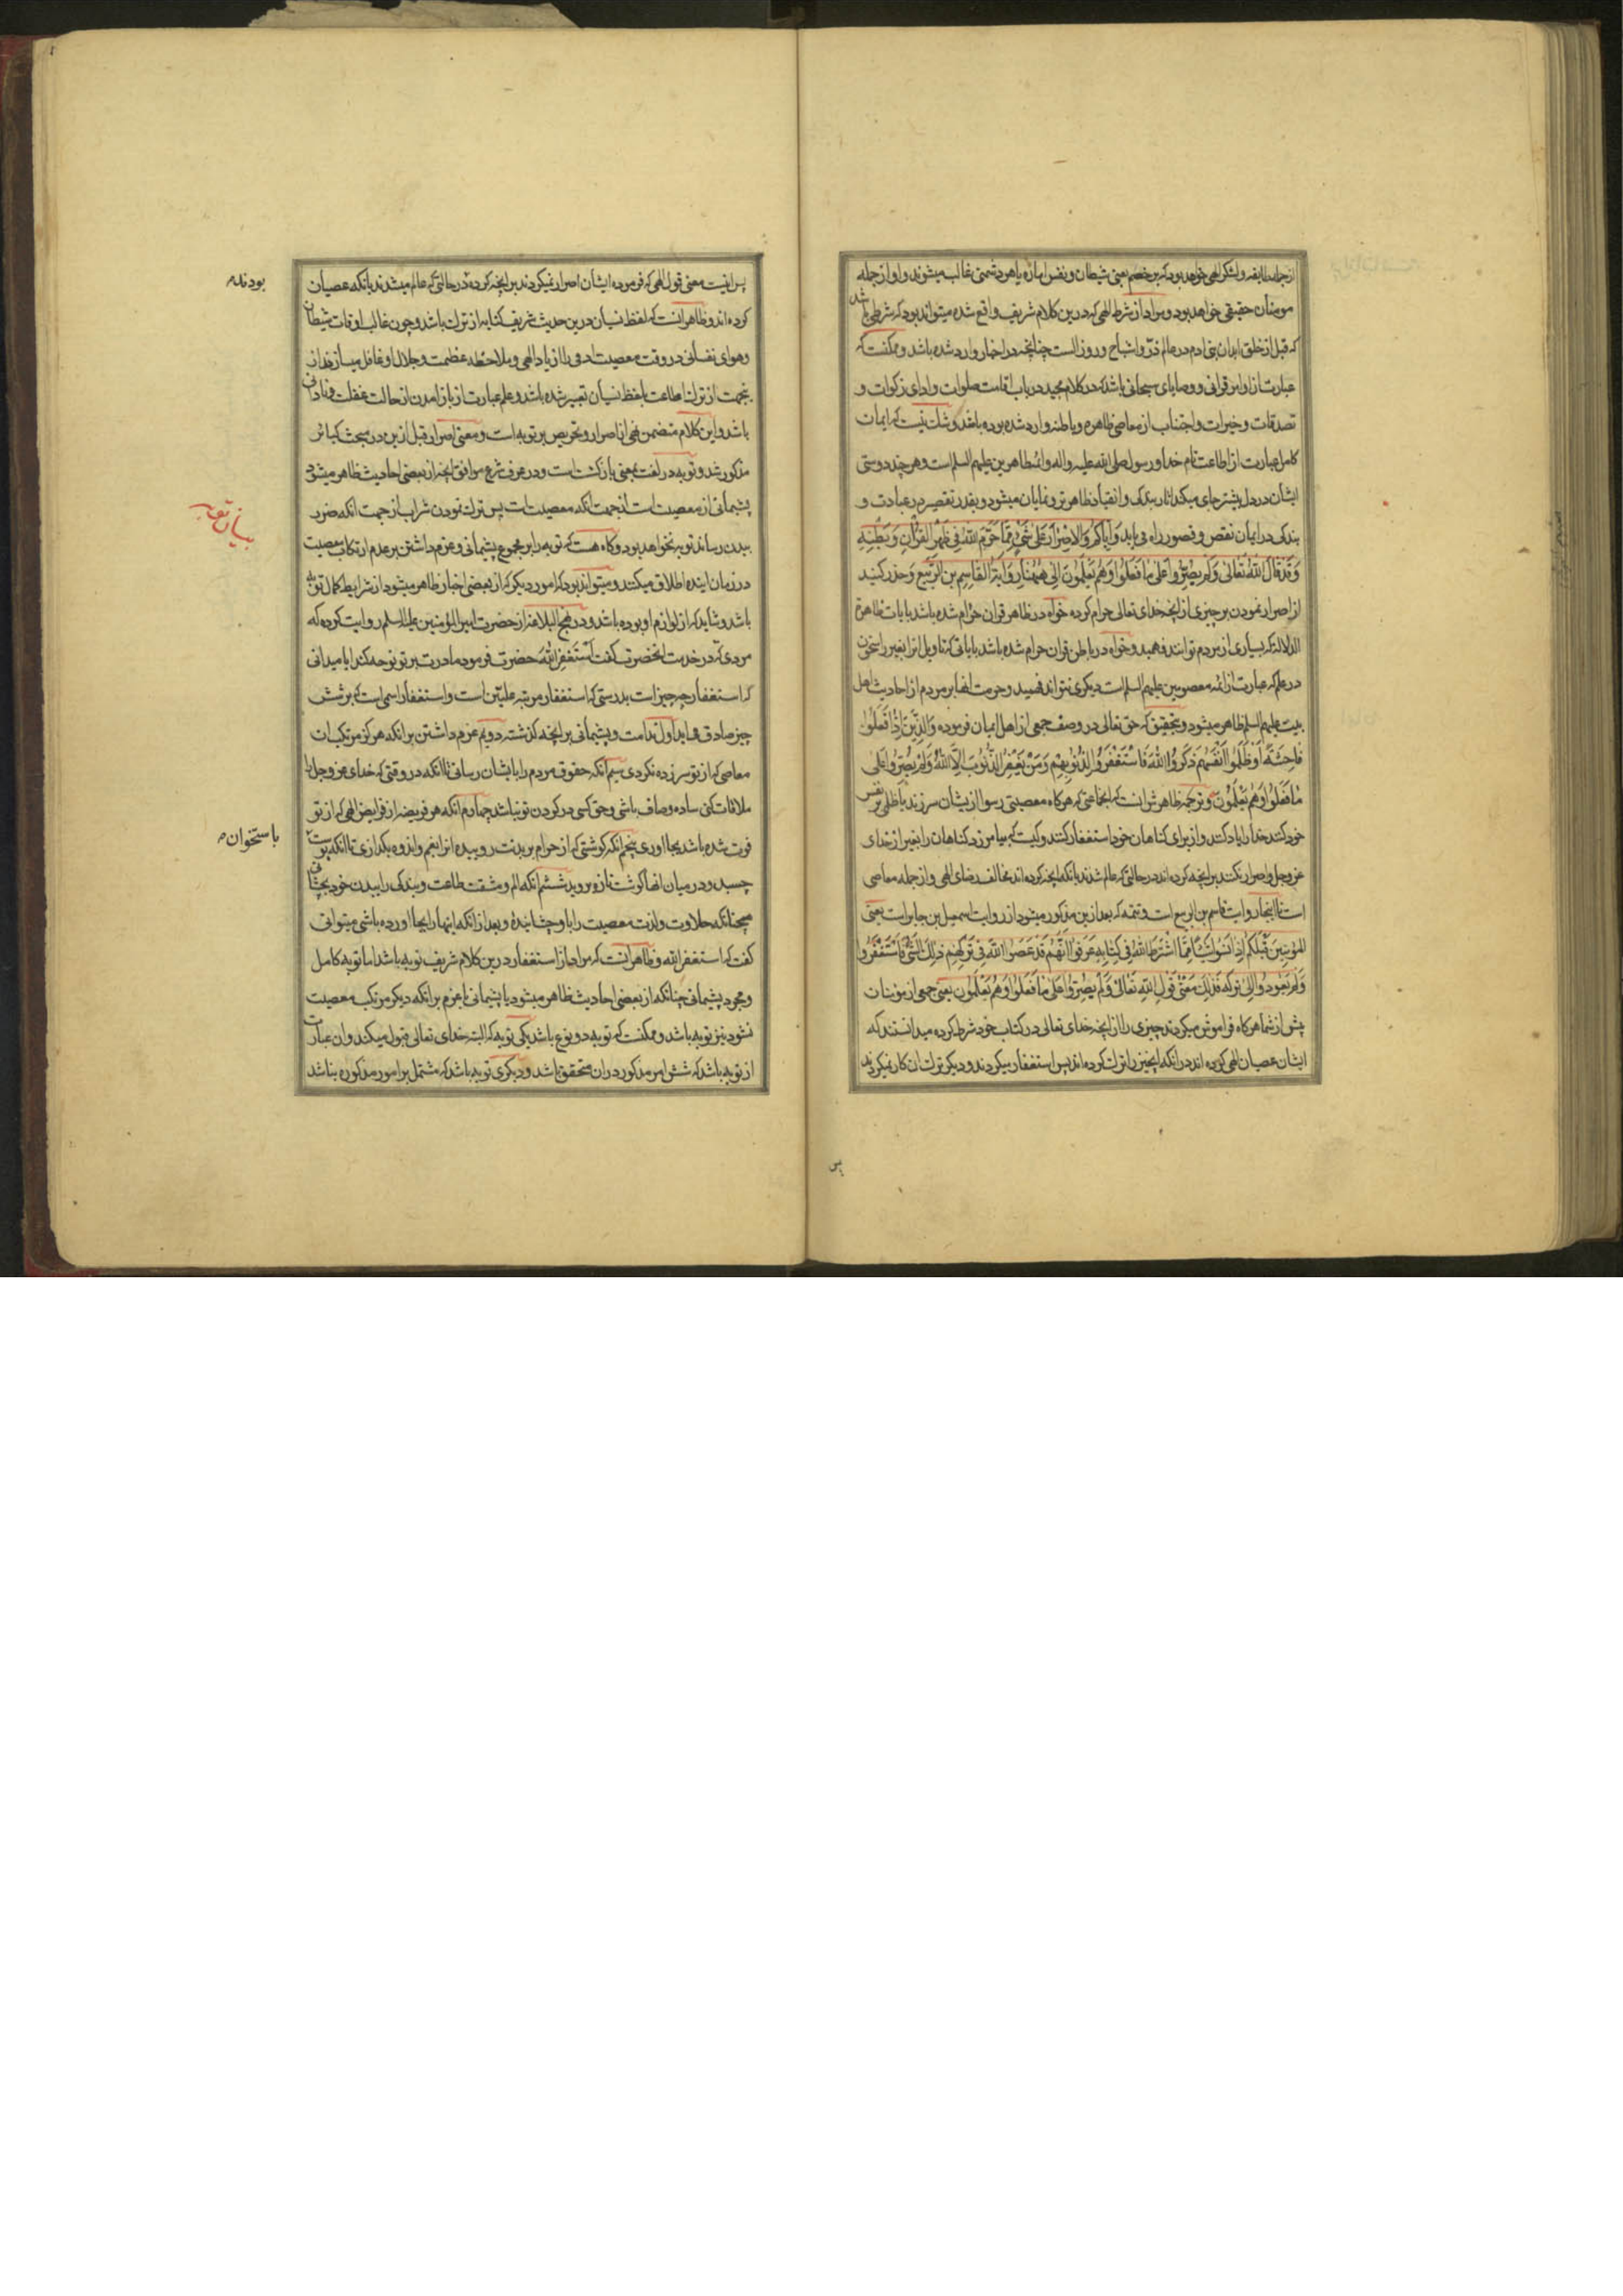 از جمله طایفه و لشکر الهی خواهد بود که بر خصم یعنی شیطان و نفس اماره یا هر دشمنی غالب میشوند و او از جمله
مومنان حقیقی خواهد بود و مراد از شرط الهی که درین کلام شریف واقع شده میتواند بود که شرطی باشد
که قبل از خلق ابدان بنی ادم در عالم ذر و اشباح و روز الست چنانچه در اخبار وارد شده باشد و ممکنست که
عبارت از اوامر قرانی و وصایای سبحانی باشد که در کلام مجید در باب اقامت صلوات و ادای زکوات و
تصدقات و خیرات و اجتناب از معاصی ظاهره و باطنه وارد شده بوده باشد و شک نیست که ایمان
کامل عبارت از اطاعت تام خدا و رسول صلی الله علیه و اله و ائمه طاهرین علیهم السلم است و هر چند دوستی
ایشان در دل بیشتر جای میکند اثار بندکی و انقیاد ظاهرتر و نمایان میشود و بقدر تقصیر در عبادت و
بندکی در ایمان نقص و قصور راه می یابد وَاِیّاکُم وَالاِصْرارَ عَلی شَیءٍ مِمّا حَرَّمَ اللهُ فی ظَهْرِ القُرْانِ وَبَطْنِهِ
وَقَدْ قالَ اللهُ تَعالی وَلَمْ یُصِرُّوا عَلی ما فَعَلُوا وَهُمْ یَعْلَمُونَ اِلی هُهُنا رِوایَةُ القاسِمِ بنِ الرَّبیعِ و حذر کنید
از اصرار نمودن بر چیزی از انچه خدای تعالی حرام کرده خواه در ظاهر قران حرام شده باشد بایات ظاهرة
الدلالة که بسیاری از مردم توانند فهمید و خواه در باطن قران حرام شده باشد بایاتی که تاویل انرا بغیر راسخون
در علم که عبارت از ائمه معصومین علیهم السلم است دیکری نتواند فهمید و حرمت انها بر مردم از احادیث اهل
بیت علیهم السلم ظاهر میشود و بتحقیق که حق تعالی در وصف جمعی از اهل ایمان فرموده وَالَّذینَ اِذا فَعَلُوا
فاحِشَةً اَوْ ظَلَمُوا اَنْفُسَهُمْ ذَکَرُوا اللهَ فَاسْتَغْفَرُوا لِذُنُوبِهِمْ وَمَنْ یَغْفِرُ الذُّنُوبَ اِلَّا اللهُ وَلَمْ یُصِرُّوا عَلی
ما فَعَلُوا وَهُمْ یَعْلَمُونَ و ترجمه ظاهرش انست که انجماعتی که هرکاه معصیتی رسوا از یشان سر زند یا ظلمی بر نفس
خود کنند خدا را یاد کنند و از برای کناهان خود استغفار کنند و کیست که بیامرزد کناهان را بغیر از خدای
عز وجل و اصرار نکنند بر انچه کرده اند در حالتی که عالم شدند بانکه انچه کرده اند مخالف رضای الهی و از جمله معاصی
است تا اینجا روایت قاسم بن الربیع است و تتمه که بعد ازین مذکور میشود از روایت اسمعیل بن جابر است یعنی
المُؤْمِنینَ قَبْلَکُمْ اِذا نَسُوا شَیْئًا مِمَّا اشْتَرَطَ اللهُ فی کِتابِهِ عَرَفُوا اَنَّهُمْ قَدْ عَصَوُا اللهَ فی تَرْکِهِمْ ذلِکَ الشَّیءَ فَاسْتَغْفَرُوا
وَلَمْ یَعُودُوا اِلی تَرْکِهِ فَذلِکَ مَعْنی قَوْلِ اللهِ تَعالی وَلَمْ یُصِرُّوا عَلی ما فَعَلُوا وَهُمْ یَعْلَمُونَ یعنی جمعی از مؤمنان
پیش از شما هرکاه فراموش میکردند چیزی را از انچه خدای تعالی در کتاب خود شرط کرده میدانستند که
ایشان عصیان الهی کرده اند در انکه انچیز را ترک کرده اند پس استغفار میکردند و دیکر ترک ان کار نمیکردند
پس
پس اینست معنی قول الهی که فرموده ایشان اصرار نمیکردند بر انچه کرده در حالتی که عالم میشدند بانکه عصیان
بودند
کرده اند و ظاهر انست که لفظ نسیان درین حدیث شریف کنایه از ترک باشد و چون غالب اوقات شیطان
و هوای نفسانی در وقت معصیت ادمی را از یاد الهی و ملاحظه عظمت و جلال او غافل میسازند از
ینجهت از ترک اطاعت بلفظ نسیان تعبیر شده باشد و علم عبارت از باز امدن از حالت غفلت و نادانی
باشد و این کلام متضمن نهی از اصرار و تحریص بر توبه است و معنی اصرار قبل ازین در مبحث کبائر
مذکور شد و توبه در لغت بمعنی بازکشت است و در عرف شرع موافق انچه از بعضی احادیث ظاهر میشود
پشیمانی از معصیت است از جهت انکه معصیتست پس ترک نمودن شراب از جهت انکه ضرر
بیان توبه
ببدن رساند توبه نخواهد بود و کاه هست که توبه را بر مجموع پشیمانی و عزم داشتن بر عدم ارتکاب معصیت
در زمان اینده اطلاق میکنند و میتواند بود که امور دیکر که از بعضی اخبار ظاهر میشود از شرایط کمال توبه
باشد و شاید که از لوازم او بوده باشد و در نهج البلاغه از حضرت امیر المؤمنین علیه السلم روایت کرده که
مردی که در خدمت انحضرت کفت اَسْتَغْفِرُ اللهَ حضرت فرمود مادرت بر تو نوحه کند ایا میدانی
که استغفار چه چیز است بدرستی که استغفار مرتبه علیین است و استغفار اسمی است که بر شش
چیز صادق می اید اول ندامت و پشیمانی بر انچه کذشته دویم عزم داشتن بر انکه هرکز مرتکب ان
معاصی که از تو سر زده نکردی سیم انکه حقوق مردم را بایشان رسانی تا انکه در وقتی که خدای عز وجل را
ملاقات کنی ساده و صاف باشی و حق کسی در کردن تو نباشد چهارم انکه هر فریضه از فرایض الهی که از تو
فوت شده باشد بجا اوری پنجم انکه کوشتی که از حرام بر بدنت روییده انرا بغم و اندوه بکدازی تا انکه پوست
باستخوان
چسبد و در میان انها کوشت تازه بروید ششم انکه الم و مشقت طاعت و بندکی را ببدن خود بچشانی
همچنانکه حلاوت و لذت معصیت را باو چشانیدهٔ و بعد از انکه اینها را بجا اورده باشی میتوانی
کفت که استغفر الله و ظاهر انست که مراد از استغفار درین کلام شریف توبه باشد اما توبه کامل
و مجرد پشیمانی چنانکه از بعضی احادیث ظاهر میشود یا پشیمانی با عزم بر انکه دیکر مرتکب معصیت
نشود نیز توبه باشد و ممکنست که توبه دو نوع باشد یکی توبه که البته خدای تعالی قبول میکند و ان عبارت
از توبه باشد که شش امر مذکور در ان متحقق باشد و دیکری توبه باشد که مشتمل بر امور مذکوره نباشد